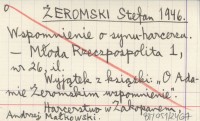 o ŻEROMSKI Stefan 1946.
Wspomnienie o synu-harcerzu.
– Młoda Rzeczpospolita 1,
nr 26, il.
Wyjątek z książki, "O Ada-
mie Żeromskim wspomnienie".
Harcerstwo w Zakopanem.
Andrzej Małkowski.